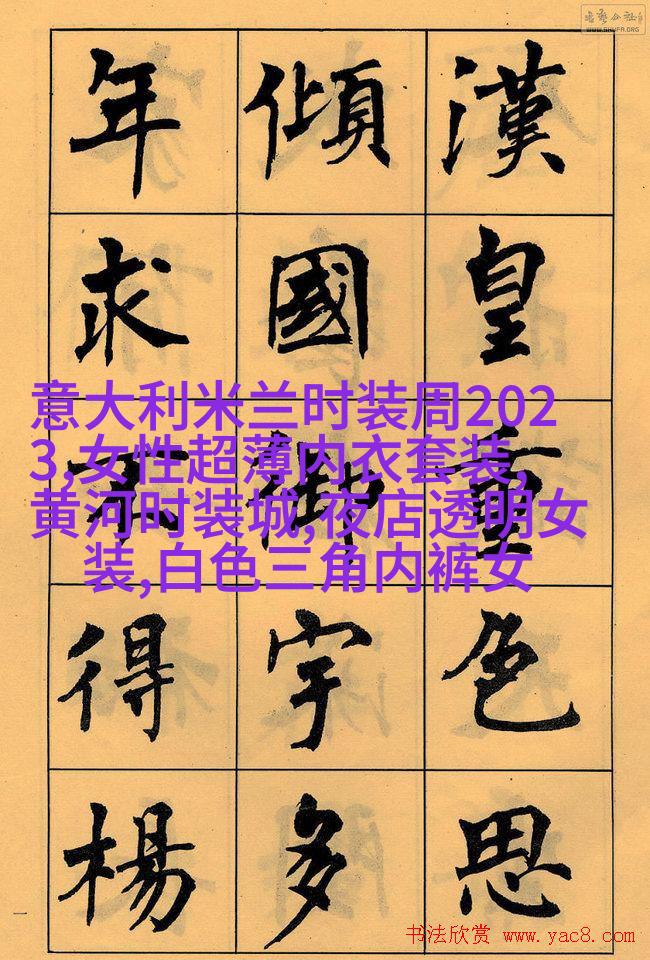 漢皇重色思
傾國御宇多
年求不得楊
意大利米兰时装周202
3,女性超薄内衣套装,
黄河时装城,夜店透明女
装,白色三角内裤女
一
WWW.SHUFA.ORG
书法欣赏 www.yac8.com